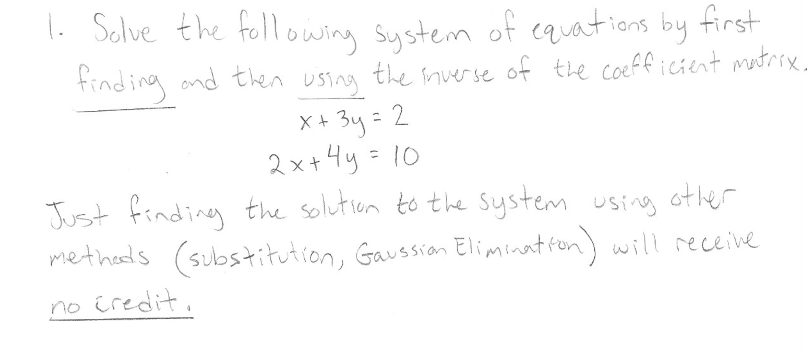 1. Solve the following system of equations by first
finding and then using the inverse of the coefficient matrix.
x + 3y = 2
2x + 4y = 10
Just finding the solution to the system using other
methods (substitution, Gaussian Elimination) will receive
no credit.